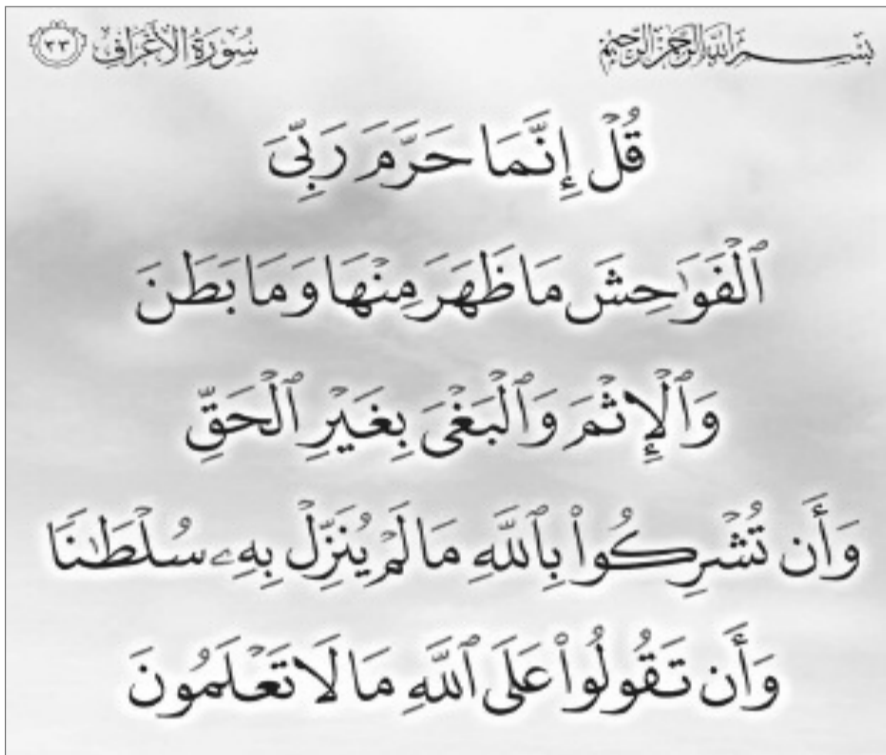 بِسْمِ اللَّهِ الرَّحْمَنِ الرَّحِيمِ سُورَةُ الأَعْرَافِ ٣٣
قُلْ إِنَّمَا حَرَّمَ رَبِّىَ
ٱلْفَوَٰحِشَ مَا ظَهَرَ مِنْهَا وَمَا بَطَنَ
وَٱلْإِثْمَ وَٱلْبَغْىَ بِغَيْرِ ٱلْحَقِّ
وَأَن تُشْرِكُوا۟ بِٱللَّهِ مَا لَمْ يُنَزِّلْ بِهِۦ سُلْطَٰنًا
وَأَن تَقُولُوا۟ عَلَى ٱللَّهِ مَا لَا تَعْلَمُونَ